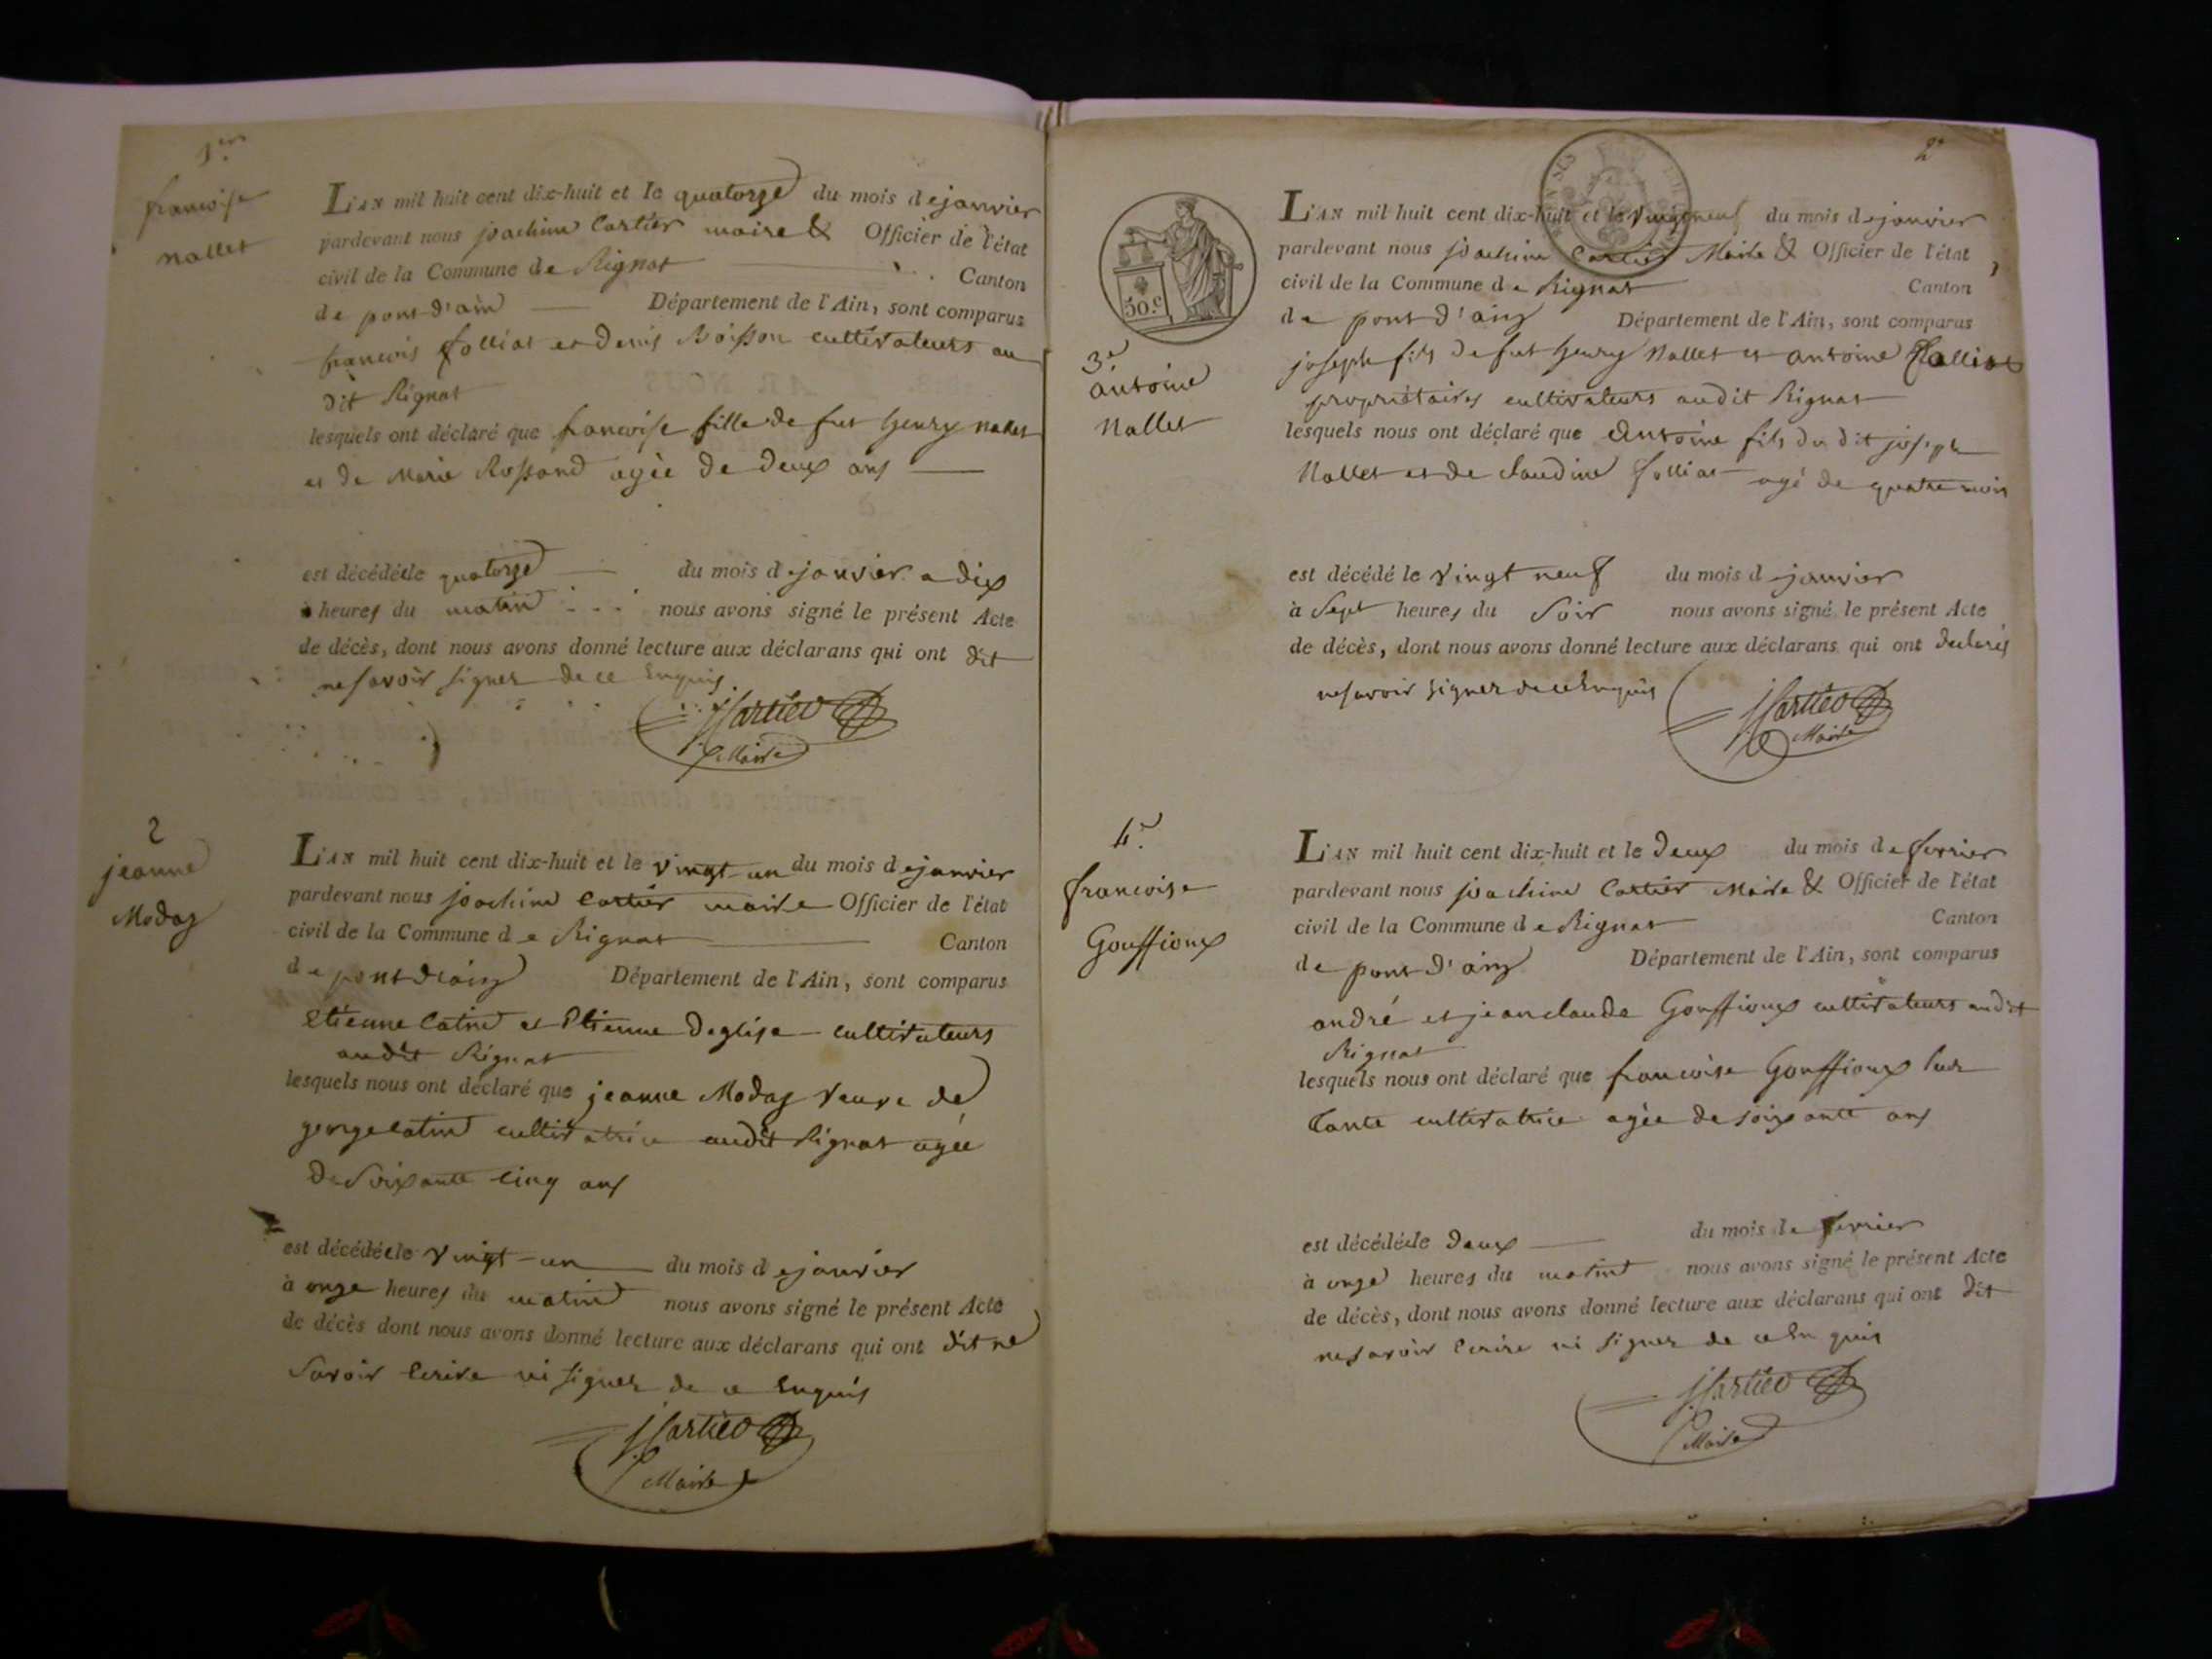 1er
francoise
nallet
L'AN mil huit cent dix-huit et le quatorze du mois de janvier
pardevant nous joachim Cartier maire & Officier de l'état
civil de la Commune de Rignat Canton
de pont d'ain Département de l'Ain, sont comparus
francois folliat et denis Boisson cultivateurs au
dit Rignat
lesquels ont déclaré que francoise fille de fut henry nallet
et de Marie Rossand agée de deux ans
est décédée le quatorze du mois de janvier a dix
heures du matin nous avons signé le présent Acte
de décès, dont nous avons donné lecture aux déclarans qui ont dit
ne savoir signer de ce Enquis
J Cartier
Maire
2
jeanne
Modas
L'AN mil huit cent dix-huit et le vingt-un du mois de janvier
pardevant nous joachim Cartier maire Officier de l'état
civil de la Commune de Rignat Canton
de pont d'ain Département de l'Ain, sont comparus
Etienne Catin et Etienne Deglise cultivateurs
audit Rignat
lesquels nous ont déclaré que jeanne Modas veuve de
george catin cultivatrice audit Rignat agée
de Soixante cinq ans
est décédée le vingt-un du mois de janvier
à onze heures du matin nous avons signé le présent Acte
de décès dont nous avons donné lecture aux déclarans qui ont dit ne
Savoir Ecrire ni signer de ce Enquis
J Cartier
Maire
2e
50.c
3e
antoine
Nallet
L'AN mil huit cent dix-huit et le vingt neuf du mois de janvier
pardevant nous joachim Cartier Maire & Officier de l'état
civil de la Commune de Rignat Canton
de pont d'ain Département de l'Ain, sont comparus
joseph fils de fut henry Nallet et antoine folliat
propriétaires cultivateurs audit Rignat
lesquels nous ont déclaré que Antoine fils du dit joseph
Nallet et de Claudine folliat agé de quatre mois
est décédé le vingt neuf du mois de janvier
à Sept heures du Soir nous avons signé le présent Acte
de décès, dont nous avons donné lecture aux déclarans qui ont declarés
ne savoir signer de ce Enquis
J Cartier
Maire
4e
francoise
Gouffioux
L'AN mil huit cent dix-huit et le deux du mois de fevrier
pardevant nous joachim Cartier Maire & Officier de l'état
civil de la Commune de Rignat Canton
de pont d'ain Département de l'Ain, sont comparus
andré et jean claude Gouffioux cultivateurs audit
Rignat
lesquels nous ont déclaré que francoise Gouffioux leur
tante cultivatrice agée de soixante ans
est décédée le deux du mois de fevrier
à onze heures du matin nous avons signé le présent Acte
de décès, dont nous avons donné lecture aux déclarans qui ont dit
ne savoir Ecrire ni signer de ce En quis
J Cartier
Maire